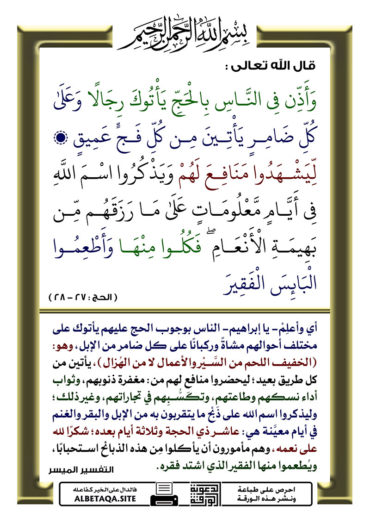 بسم الله الرحمن الرحيم
قال الله تعالى :
وَأَذِّن فِي النَّاسِ بِالْحَجِّ يَأْتُوكَ رِجَالًا وَعَلَىٰ
كُلِّ ضَامِرٍ يَأْتِينَ مِن كُلِّ فَجٍّ عَمِيقٍ ۞
لِّيَشْهَدُوا مَنَافِعَ لَهُمْ وَيَذْكُرُوا اسْمَ اللَّهِ
فِي أَيَّامٍ مَّعْلُومَاتٍ عَلَىٰ مَا رَزَقَهُم مِّن
بَهِيمَةِ الْأَنْعَامِ ۖ فَكُلُوا مِنْهَا وَأَطْعِمُوا
الْبَائِسَ الْفَقِيرَ
( الحج : ٢٧ – ٢٨ )
أي وأعلِمْ - يا إبراهيم - الناس بوجوب الحج عليهم يأتوك على
مختلف أحوالهم مشاةً وركبانًا على كل ضامر من الإبل ، وهو :
( الخفيف اللحم من السَّيْر والأعمال لا من الهُزال ) ، يأتين من
كل طريق بعيد ؛ ليحضروا منافع لهم من : مغفرة ذنوبهم ، وثواب
أداء نسكهم وطاعتهم ، وتكَسُّبِهم في تجاراتهم ، وغير ذلك ؛
وليذكروا اسم الله على ذَبْح ما يتقربون به من الإبل والبقر والغنم
في أيام معيَّنة هي : عاشر ذي الحجة وثلاثة أيام بعده ؛ شكرًا لله
على نعمه ، وهم مأمورون أن يأكلوا مِن هذه الذبائح استحبابًا ،
ويُطعموا منها الفقير الذي اشتد فقره . التفسير الميسر
احرص على طباعة
ونشر هذه الورقة
الورقة الدعوية
فالدال على الخير كفاعله
ALBETAQA.SITE